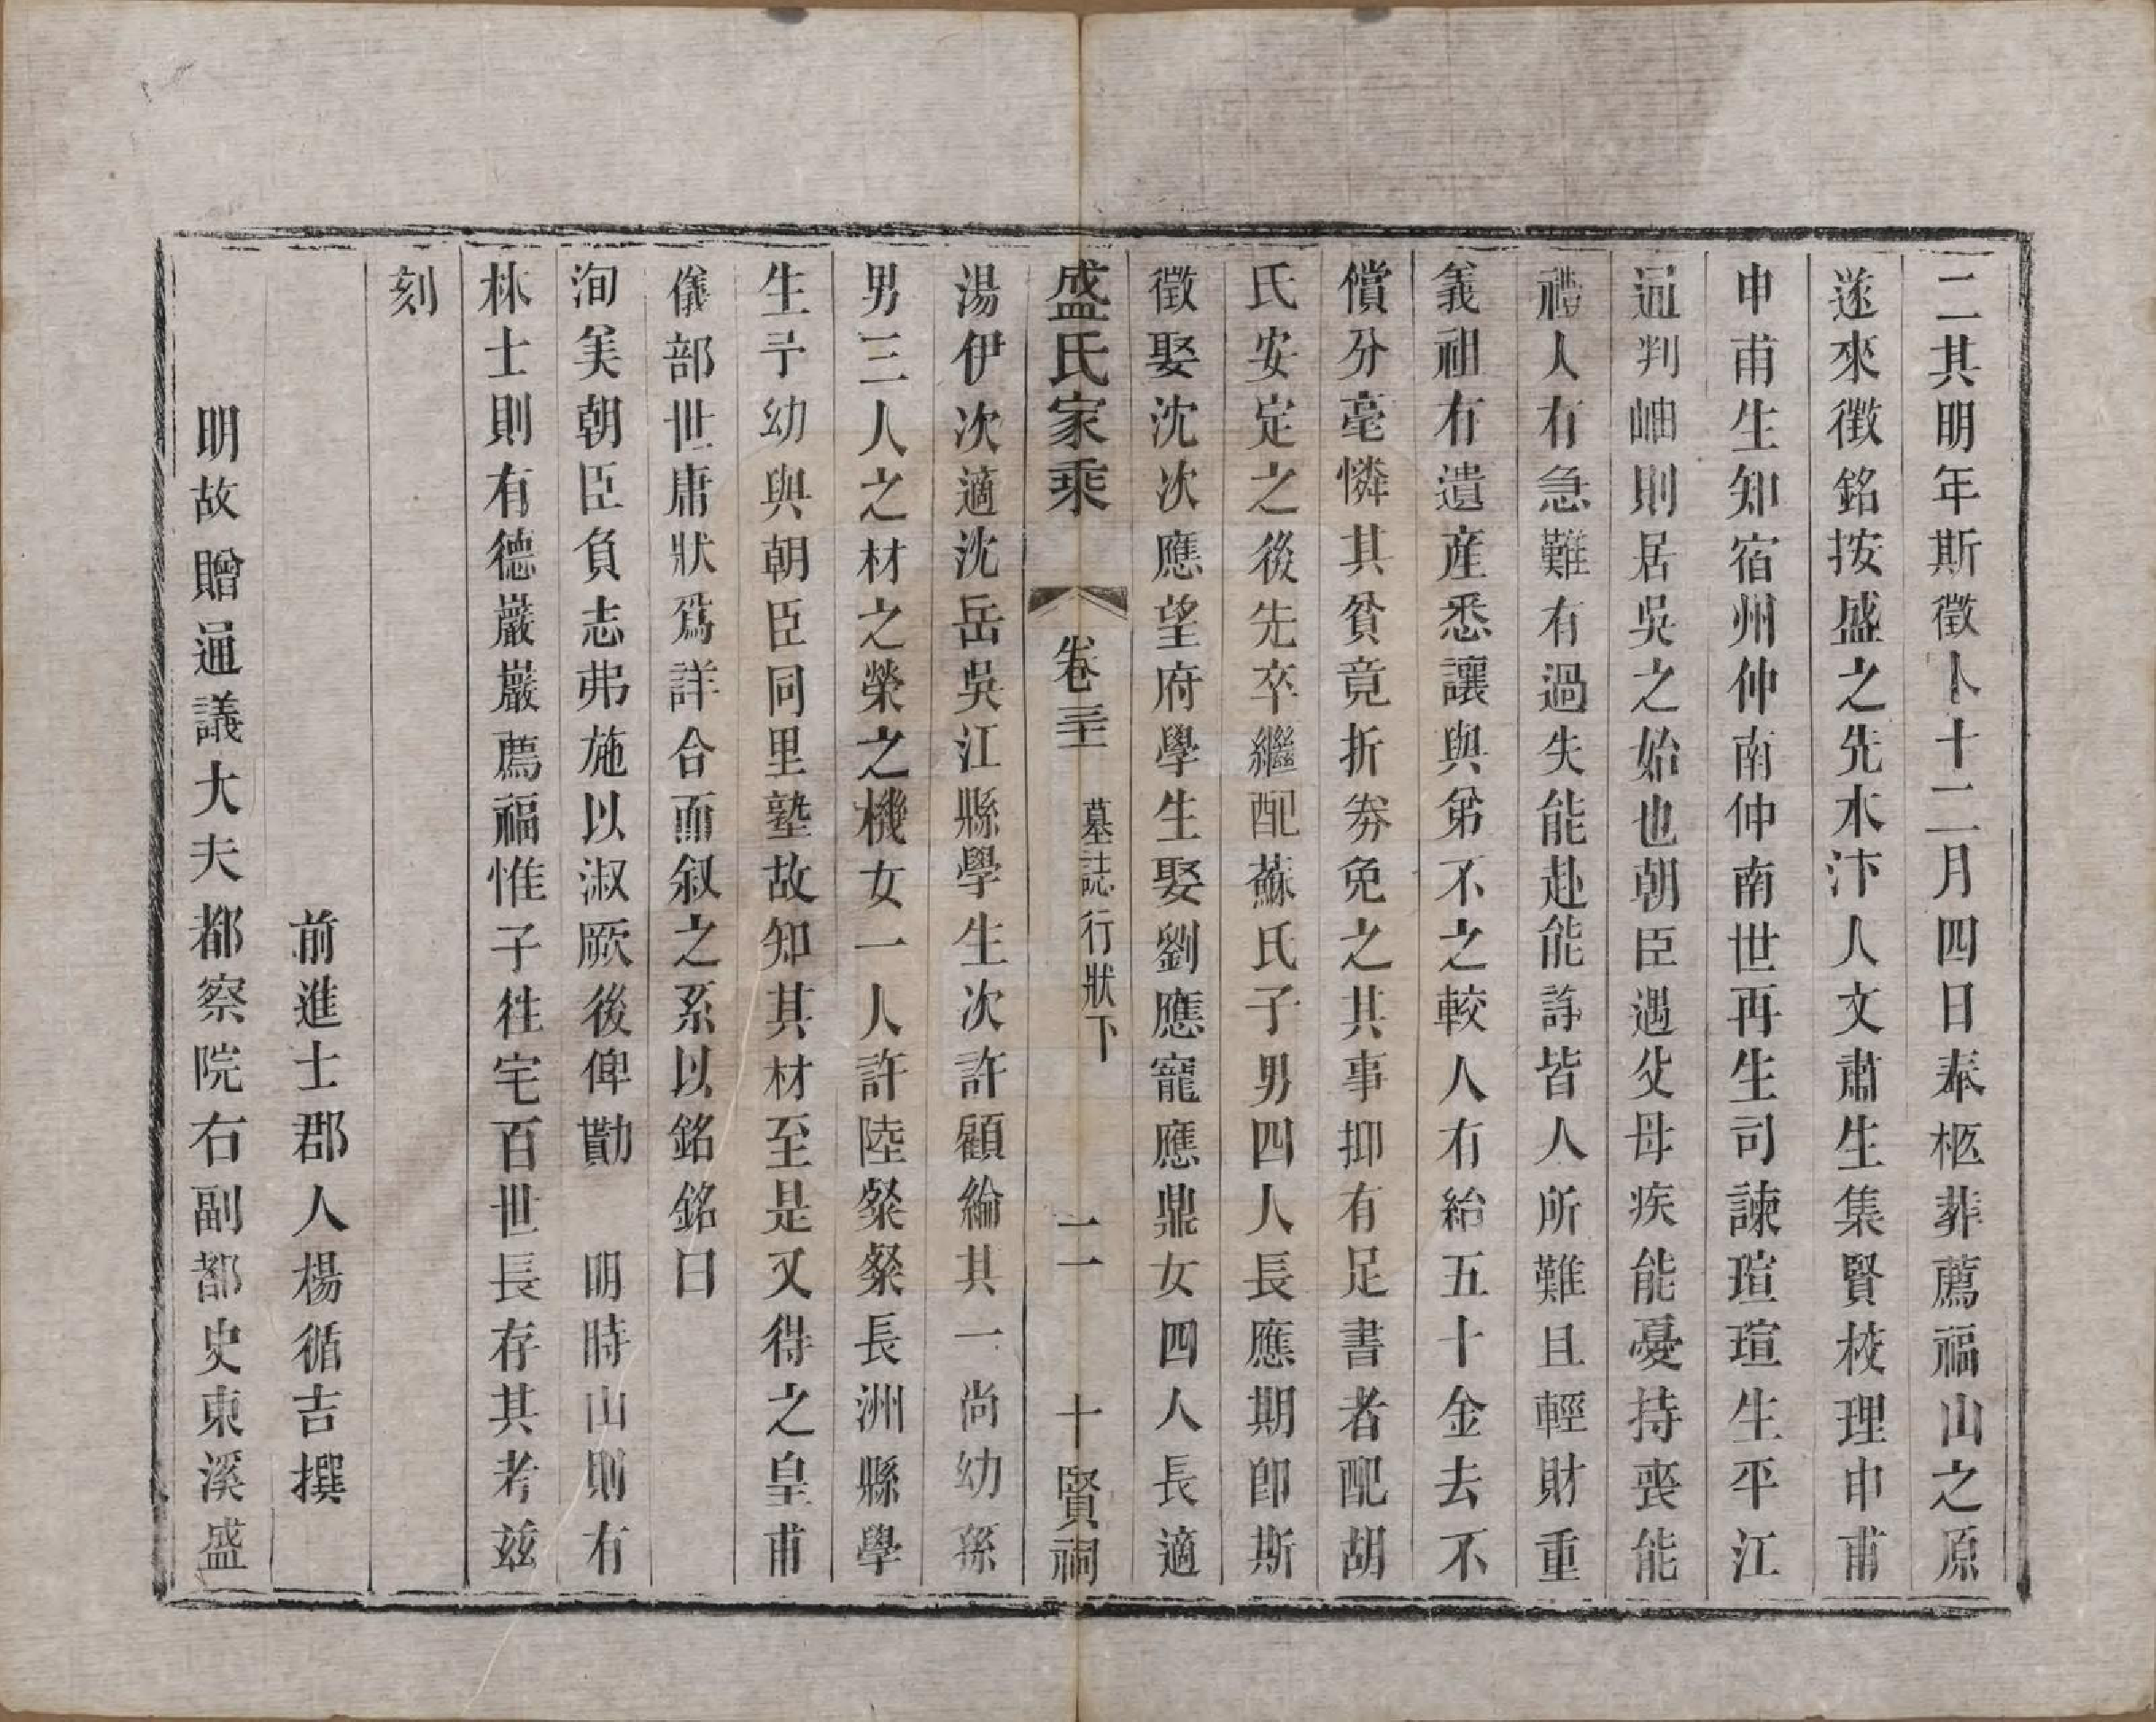 二其明年斯徵卜十二月四日奉柩葬薦福山之原
遂來徵銘按盛之先本汴人文肅生集賢校理申甫
申甫生知宿州仲南仲南世再生司諫瑄瑄生平江
通判岫則居吳之始也朝臣遇父母疾能憂持喪能
禮人有急難有過失能赴能諍皆人所難且輕財重
義祖有遺產悉讓與弟不之較人有紿五十金去不
償分毫憐其貧竟折券免之其事抑有足書者配胡
氏安定之後先卒繼配蘇氏子男四人長應期卽斯
徵娶沈次應望府學生娶劉應寵應鼎女四人長適
盛氏家乘 卷三十 墓誌行狀下 二 十賢祠
湯伊次適沈岳吳江縣學生次許顧綸其一尚幼孫
男三人之材之榮之機女一人許陸粲粲長洲縣學
生予幼與朝臣同里塾故知其材至是又得之皇甫
儀部世庸狀爲詳合而叙之系以銘銘曰
洵美朝臣負志弗施以淑厥後俾勩 明時山則有
林士則有德巖巖薦福惟子徃宅百世長存其考兹
刻
前進士郡人楊循吉撰
明故贈通議大夫都察院右副都史東溪盛